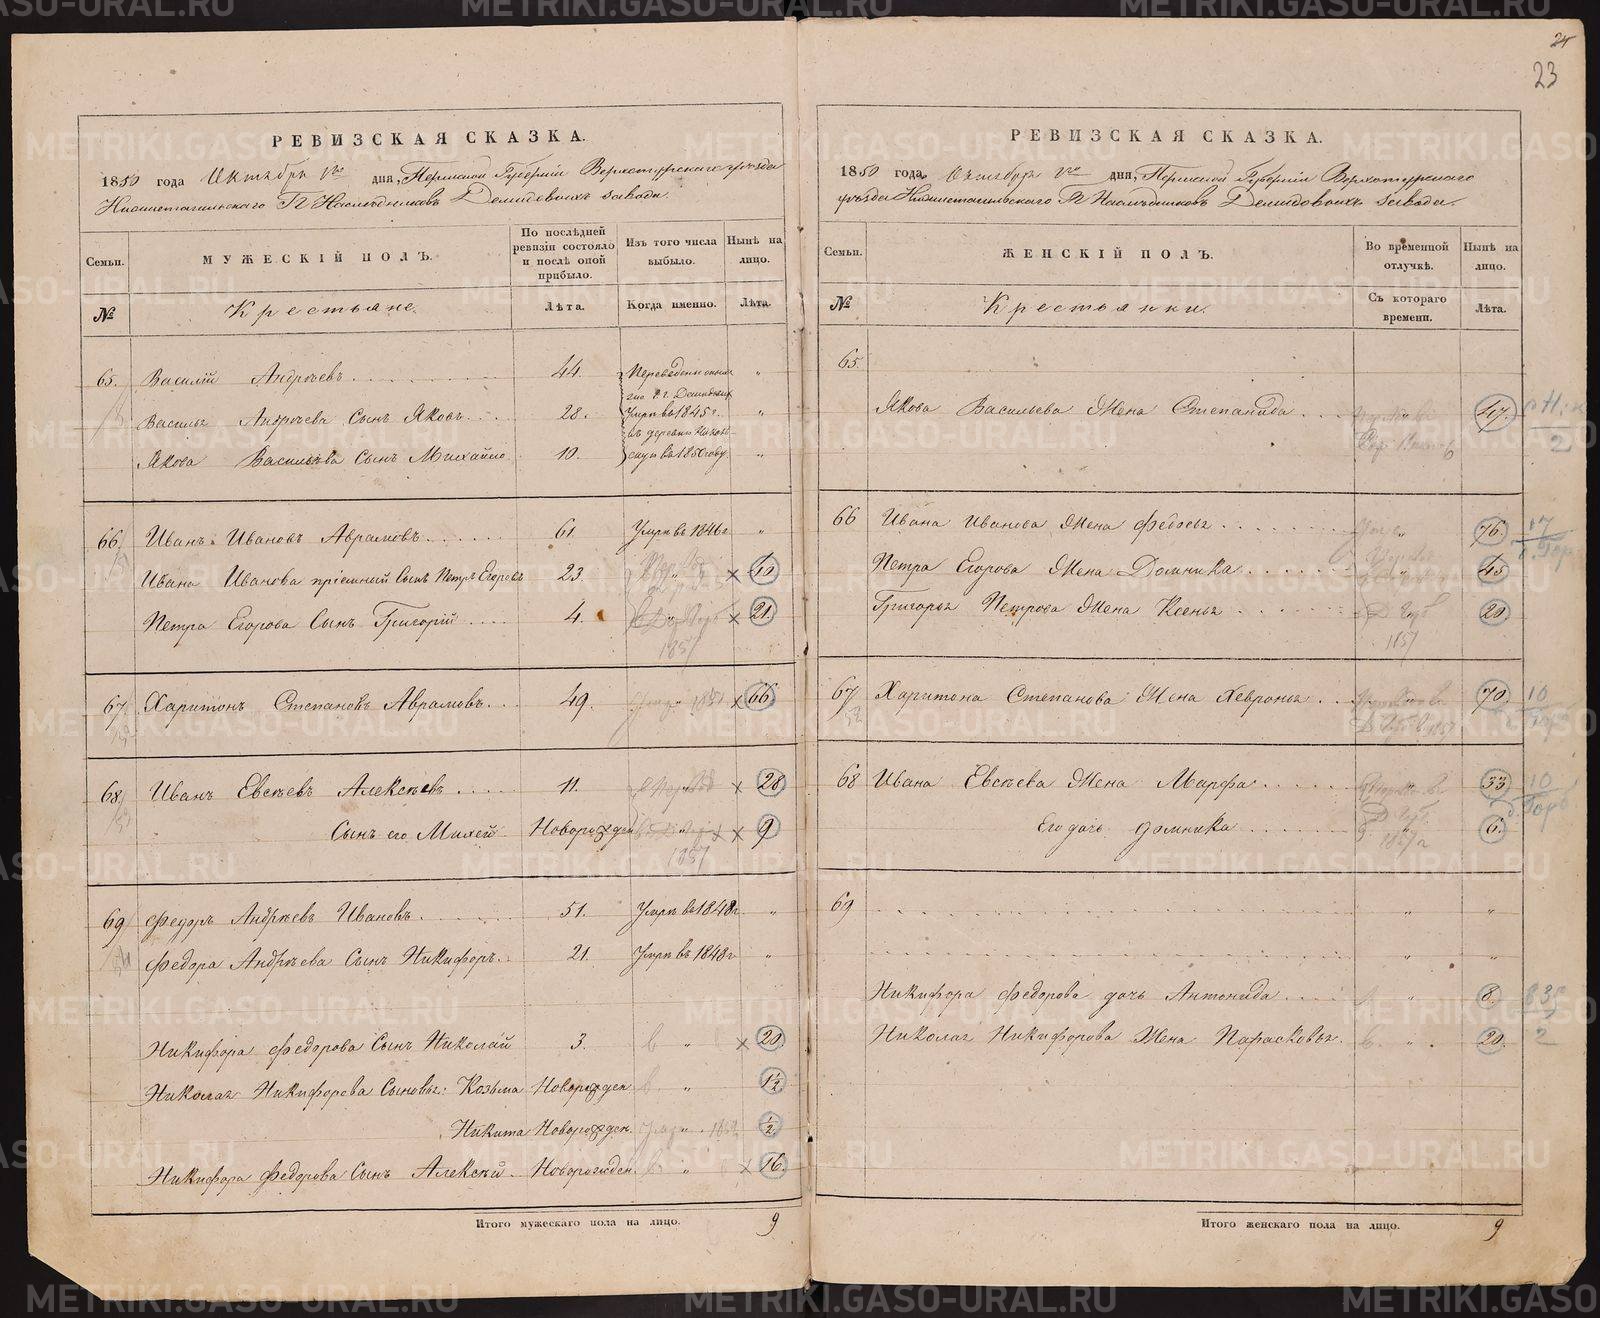 24
23
РЕВИЗСКАЯ СКАЗКА.
1850 года Октября 1го дня, Пермской Губерніи Верхотурскаго уѣзда
Нижнетагильскаго ГГ Наслѣдниковъ Демидовыхъ завода.
Семьи.
МУЖЕСКІЙ ПОЛЪ.
По послѣдней ревизіи состояло и послѣ оной прибыло.
Изъ того числа выбыло.
Нынѣ на лицо.
№
Крестьяне.
Лѣта.
Когда именно.
Лѣта.
65. Василій Андрѣевъ 44. Переведены
Василья Андрѣева Сынъ Яковъ 28. Умре въ 1845 г. "
въ деревню
Якова Васильева Сынъ Михайло 10. въ 1850 году "
66. Иванъ Ивановъ Аврамовъ 61. Умре въ 1846 г "
Ивана Иванова пріемный Сынъ Петръ Егоровъ 23. " × 40
Петра Егорова Сынъ Григорій 4. " × 21.
1857
67. Харитонъ Степановъ Аврамовъ 49. × 66
68. Иванъ Евсѣевъ Алексѣевъ 11. " × 28
Сынъ его Михей Новорожден " × 9
1857
69 Федоръ Андрѣевъ Ивановъ 51. Умре въ 1848 г. "
Федора Андрѣева Сынъ Никифоръ. 21. Умре въ 1848 г "
Никифора Федорова Сынъ Николай 3. " × 20
Николая Никифорова Сыновья: Козьма Новорожден " 1½
Никита Новорожден. " ½
Никифора Федорова Сынъ Алексѣй. Новорожден. " × 16.
Итого мужескаго пола на лицо. 9
РЕВИЗСКАЯ СКАЗКА.
1850 года Октября 1го дня, Пермской Губерніи Верхотурскаго
уѣзда Нижнетагильскаго ГГ Наслѣдниковъ Демидовыхъ завода.
Семьи.
ЖЕНСКІЙ ПОЛЪ.
Во временной отлучкѣ.
Нынѣ на лицо.
№
Крестьянки.
Съ котораго времени.
Лѣта.
65
Якова Васильева Жена Степанида " 47.
66 Ивана Иванова Жена Федосья " 76.
Петра Егорова Жена Домника " 45
Григорья Петрова Жена Ксенья 20
1857
67 Харитона Степанова Жена Хевронья 70
68 Ивана Евсѣева Жена Марфа 33
Его дочь Домника " 6.
69 " "
" "
Никифора Федорова дочь Антонида " 8.
Николая Никифорова Жена Парасковья " 20.
Итого женскаго пола на лицо. 9
METRIKI.GASO-URAL.RU